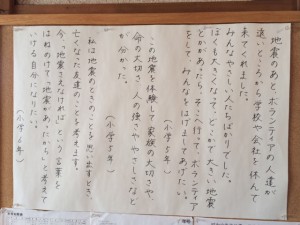 地震のあと、ボランティアの人達が
遠いところから学校や会社を休んで
来てくれました。
みんなやさしい人たちばかりでした。
ぼくも大きくなって、どこかで大きい地震
とかがあったら、そこへ行って、ボランティア
をして、みんなをはげましてあげたい。
（小学５年）
この地震を体験して家族の大切さや、
命の大切さ、人の強さややさしさなど
が分かった。
（小学５年）
私は地震のときのことを思い出すとき、
亡くなった友達のことを考えます。
今、「地震さえなければ」という言葉を
はねのけて「地震があったから」と考えて
いける自分になりたい。
（小学６年）